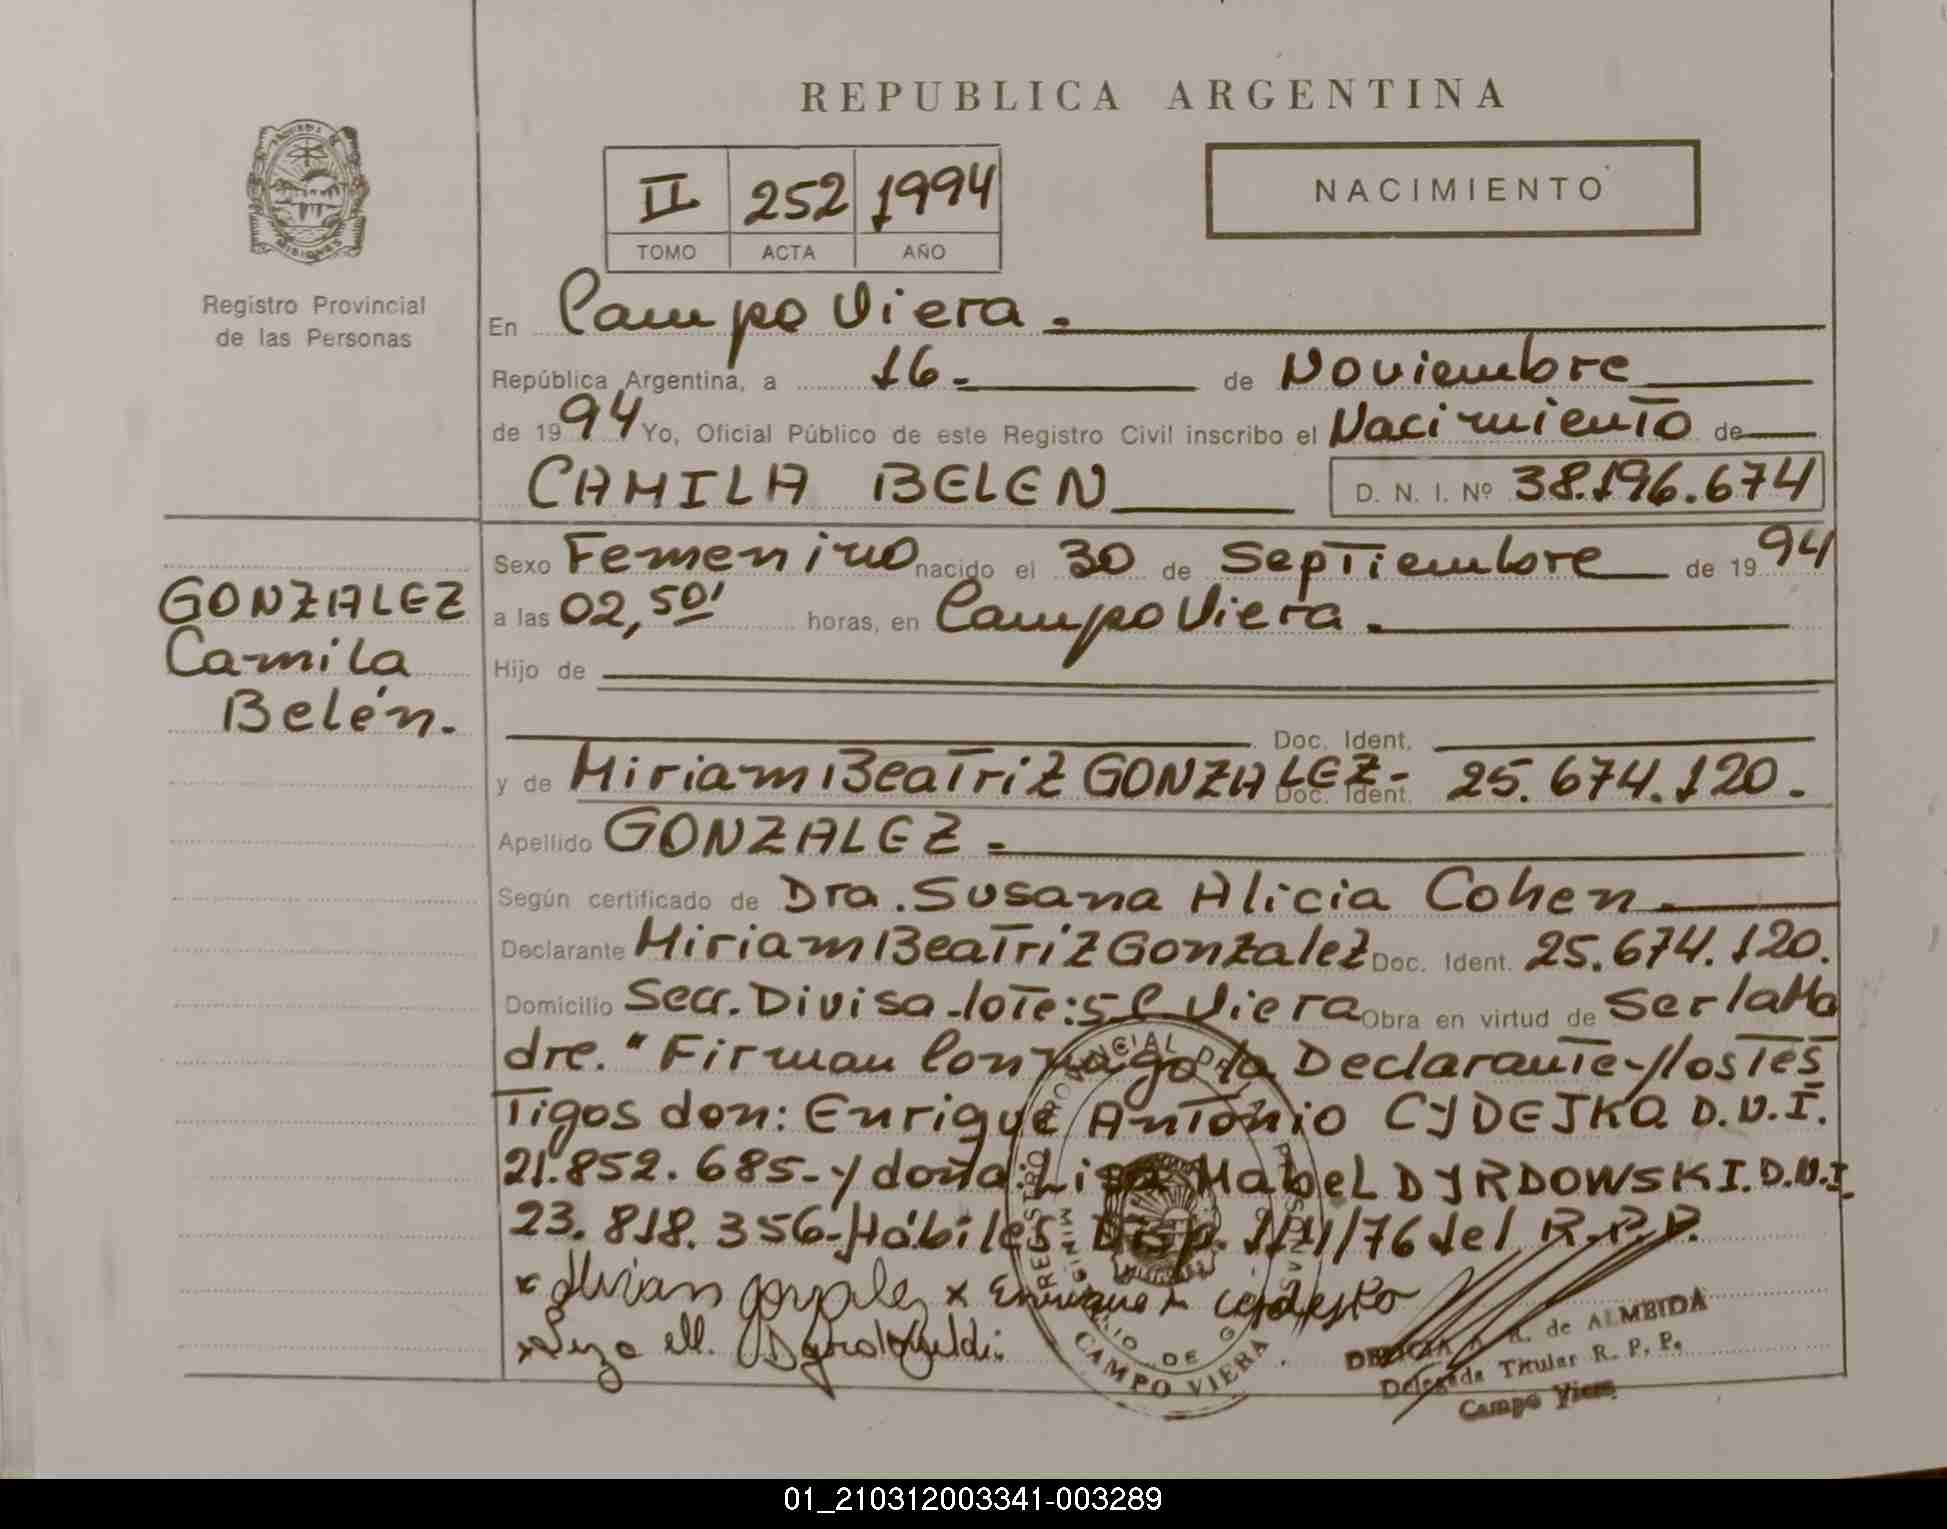 REPUBLICA ARGENTINA
NACIMIENTO
II 252 1994
TOMO ACTA AÑO
Registro Provincial
de las Personas
En Campo Viera.
República Argentina, a 16 de Noviembre
de 1994 Yo, Oficial Público de este Registro Civil inscribo el Nacimiento de
CAMILA BELEN D. N. I. Nº 38.196.674
GONZALEZ
Camila
Belén.
Sexo Femenino nacido el 30 de Septiembre de 1994
a las 02,50' horas, en Campo Viera.
Hijo de
Doc. Ident.
y de Miriam Beatriz GONZALEZ- Doc. Ident. 25.674.120.
Apellido GONZALEZ.
Según certificado de Dra. Susana Alicia Cohen
Declarante Miriam Beatriz Gonzalez Doc. Ident. 25.674.120.
Domicilio Secc. Divisa-lote:5 C. Viera Obra en virtud de ser la Ma
dre. "Firman conmigo la Declarante y los Tes
Tigos don: Enrique Antonio CYDEJKO D.N.I.
21.852.685- y doña: Lisa Mabel DYRDOWSKI. D.N.I.
23.818.356- Hábiles Disp. 171/76 del R.P.P.
x Mirian gonzalez x Enrique A Cydejko
x Liza M.
REGISTRO PROVINCIAL DE LAS PERSONAS
MINISTERIO DE G
CAMPO VIERA
R. de ALMEIDA
Delegada Titular R. P. P.
Campo Viera
01_210312003341-003289